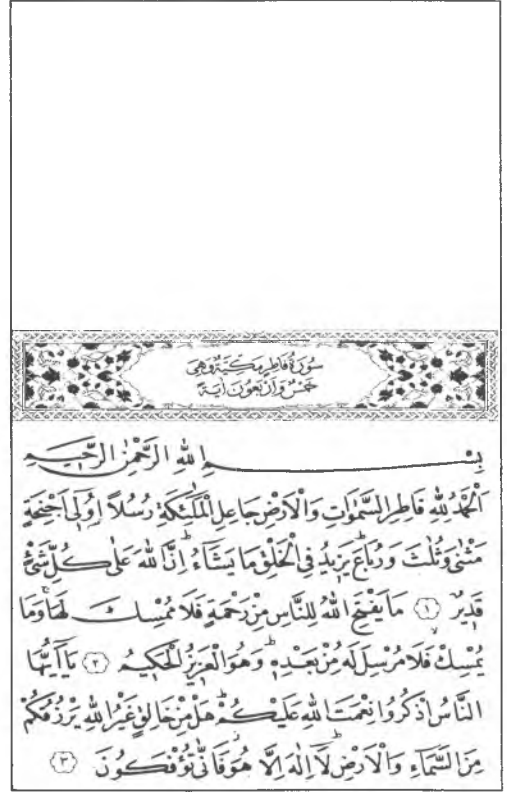 سُورَةُ فَاطِرٍ مَكِّيَّةٌ وَهِيَ
خَمْسٌ وَأَرْبَعُونَ اٰيَةً
بِسْــــــــمِ اللهِ الرَّحْمٰنِ الرَّحٖيــــمِ
اَلْحَمْدُ لِلّٰهِ فَاطِرِ السَّمٰوَاتِ وَالْاَرْضِ جَاعِلِ الْمَلٰٓئِكَةِ رُسُلًا اُو۬لٖٓي اَجْنِحَةٍ
مَثْنٰى وَثُلٰثَ وَرُبَاعَ يَزٖيدُ فِي الْخَلْقِ مَا يَشَٓاءُ اِنَّ اللهَ عَلٰى كُلِّ شَيْءٍ
قَدٖيرٌ ﴿١﴾ مَا يَفْتَحِ اللهُ لِلنَّاسِ مِنْ رَحْمَةٍ فَلَا مُمْسِكَ لَهَا وَمَا
يُمْسِكْ فَلَا مُرْسِلَ لَهُ مِنْ بَعْدِهٖ وَهُوَ الْعَزٖيزُ الْحَكٖيمُ ﴿٢﴾ يَٓا اَيُّهَا
النَّاسُ اذْكُرُوا نِعْمَتَ اللهِ عَلَيْكُمْ هَلْ مِنْ خَالِقٍ غَيْرُ اللهِ يَرْزُقُكُمْ
مِنَ السَّمَٓاءِ وَالْاَرْضِ لَٓا اِلٰهَ اِلَّا هُوَ فَاَنّٰى تُؤْفَكُونَ ﴿٣﴾